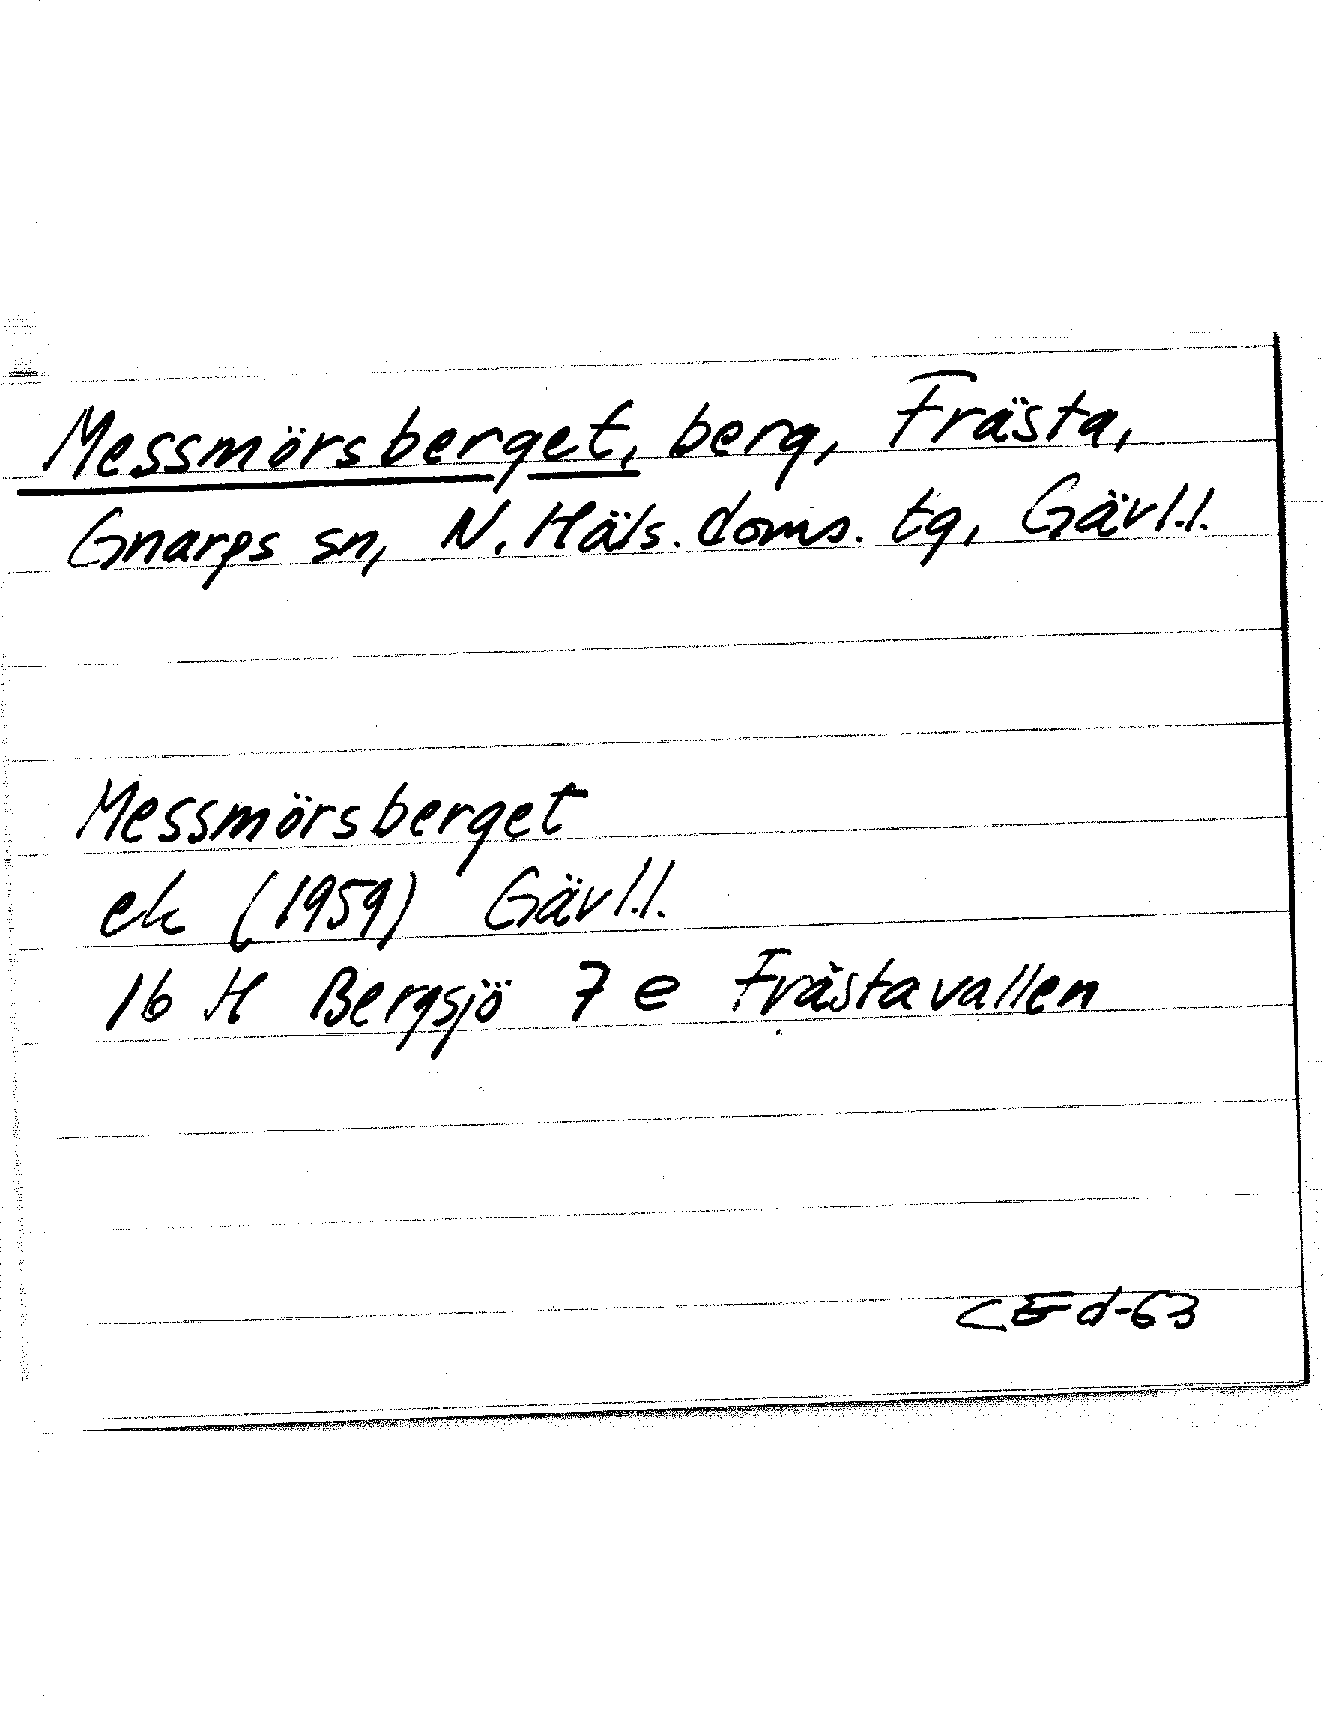 Messmörsberget, berg, Frästa,
Gnarps sn, N. Häls. doms. tg, Gävl.l.
Messmörsberget
ek (1959) Gävl.l.
16 H Bergsjö 7 e Frästavallen
d-63